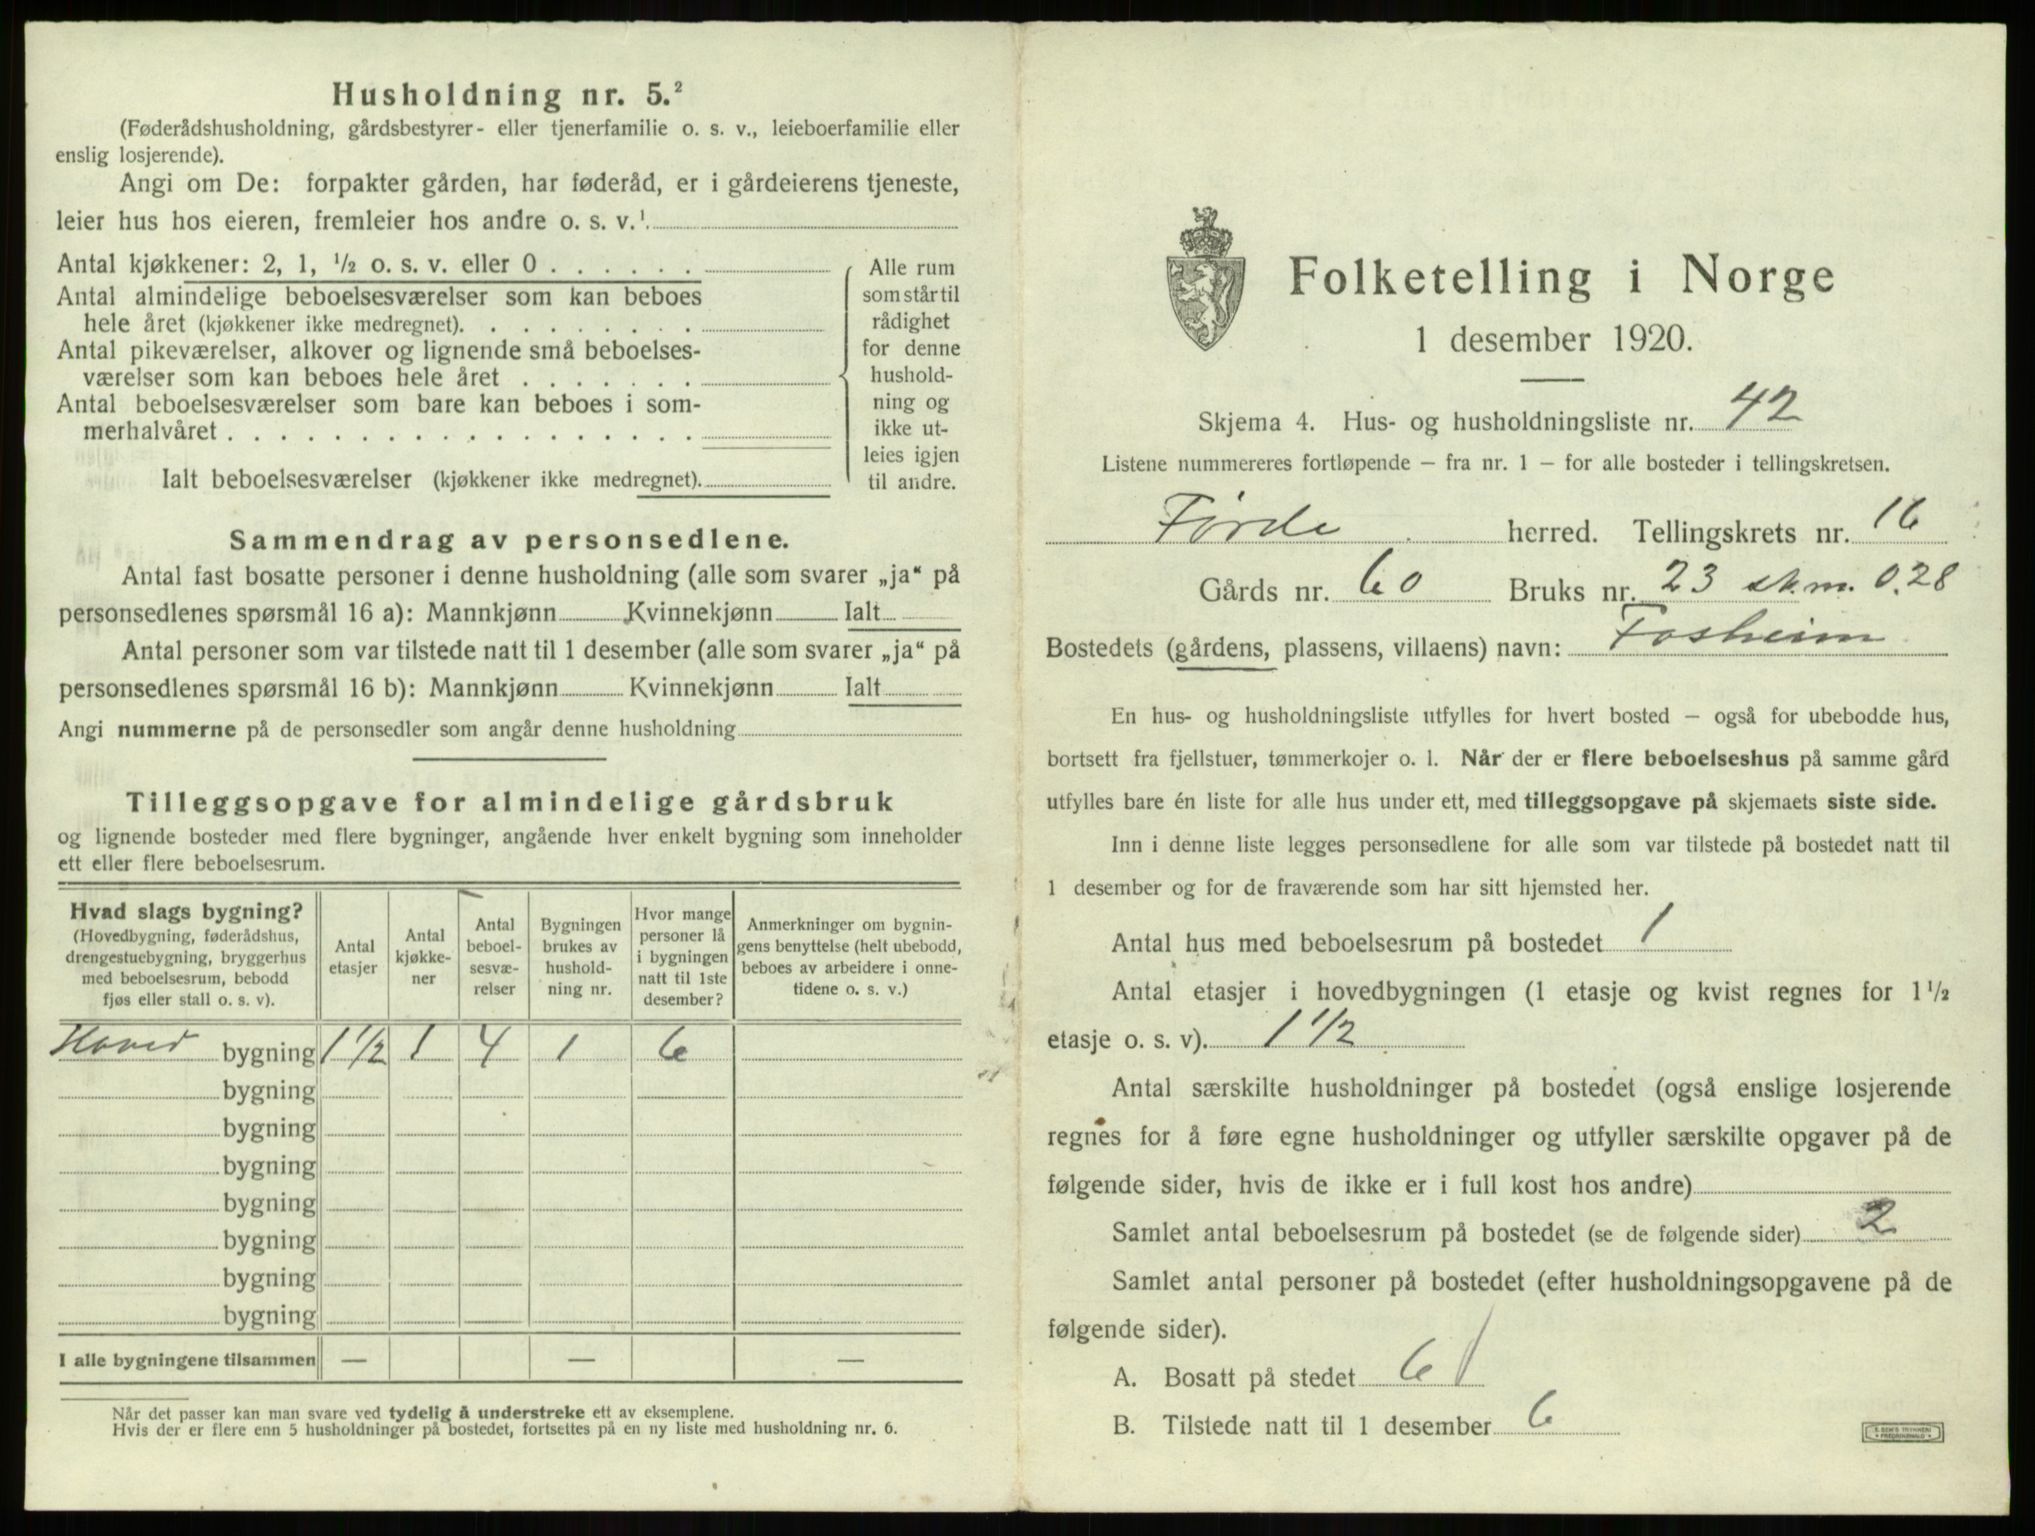 Husholdning nr. 5.²
(Føderådshusholdning, gårdsbestyrer- eller tjenerfamilie o. s. v., leieboerfamilie eller
enslig losjerende).
Angi om De: forpakter gården, har føderåd, er i gårdeierens tjeneste,
leier hus hos eieren, fremleier hos andre o. s. v.¹
Antal kjøkkener: 2, 1, ½ o. s. v. eller 0 . . . . . .
Antal almindelige beboelsesværelser som kan beboes
hele året (kjøkkener ikke medregnet). . . . . . . . .
Antal pikeværelser, alkover og lignende små beboelses-
værelser som kan beboes hele året . . . . . . .
Antal beboelsesværelser som bare kan beboes i som-
merhalvåret . . . . . . . . . . . . . . . . . .
Ialt beboelsesværelser (kjøkkener ikke medregnet).
Alle rum
som står til
rådighet
for denne
hushold-
ning og
ikke ut-
leies igjen
til andre.
Sammendrag av personsedlene.
Antal fast bosatte personer i denne husholdning (alle som svarer „ja“ på
personsedlenes spørsmål 16 a): Mannkjønn Kvinnekjønn Ialt
Antal personer som var tilstede natt til 1 desember (alle som svarer „ja“ på
personsedlenes spørsmål 16 b): Mannkjønn Kvinnekjønn Ialt
Angi nummerne på de personsedler som angår denne husholdning
Tilleggsopgave for almindelige gårdsbruk
og lignende bosteder med flere bygninger, angående hver enkelt bygning som inneholder
ett eller flere beboelsesrum.
Hvad slags bygning?
(Hovedbygning, føderådshus,
drengestuebygning, bryggerhus
med beboelsesrum, bebodd
fjøs eller stall o. s. v).
Antal
etasjer
Antal
kjøkke-
ner
Antal
beboel-
sesvæ-
relser
Bygningen
brukes av
hushold-
ning nr.
Hvor mange
personer lå
i bygningen
natt til 1ste
desember?
Anmerkninger om bygnin-
gens benyttelse (helt ubebodd,
beboes av arbeidere i onne-
tidene o. s. v.)
Hoved bygning 1 1/2 1 4 1 6
bygning
bygning
bygning
bygning
bygning
bygning
bygning
I alle bygningene tilsammen — — —
Når det passer kan man svare ved tydelig å understreke ett av eksemplene.
Hvis der er flere enn 5 husholdninger på bostedet, fortsettes på en ny liste med husholdning nr. 6.
Folketelling i Norge
1 desember 1920.
Skjema 4. Hus- og husholdningsliste nr. 42
Listene nummereres fortløpende – fra nr. 1 – for alle bosteder i tellingskretsen.
Førde herred. Tellingskrets nr. 16
Gårds nr. 60 Bruks nr. 23 sk.m. 0.28
Bostedets (gårdens, plassens, villaens) navn: Fosheim
En hus- og husholdningsliste utfylles for hvert bosted – også for ubebodde hus,
bortsett fra fjellstuer, tømmerkojer o. l. Når der er flere beboelseshus på samme gård
utfylles bare én liste for alle hus under ett, med tilleggsopgave på skjemaets siste side.
Inn i denne liste legges personsedlene for alle som var tilstede på bostedet natt til
1 desember og for de fraværende som har sitt hjemsted her.
Antal hus med beboelsesrum på bostedet 1
Antal etasjer i hovedbygningen (1 etasje og kvist regnes for 1½
etasje o. s. v). 1 1/2
Antal særskilte husholdninger på bostedet (også enslige losjerende
regnes for å føre egne husholdninger og utfyller særskilte opgaver på de
følgende sider, hvis de ikke er i full kost hos andre)
Samlet antal beboelsesrum på bostedet (se de følgende sider) 2
Samlet antal personer på bostedet (efter husholdningsopgavene på de
følgende sider).
A. Bosatt på stedet 6
B. Tilstede natt til 1 desember 6